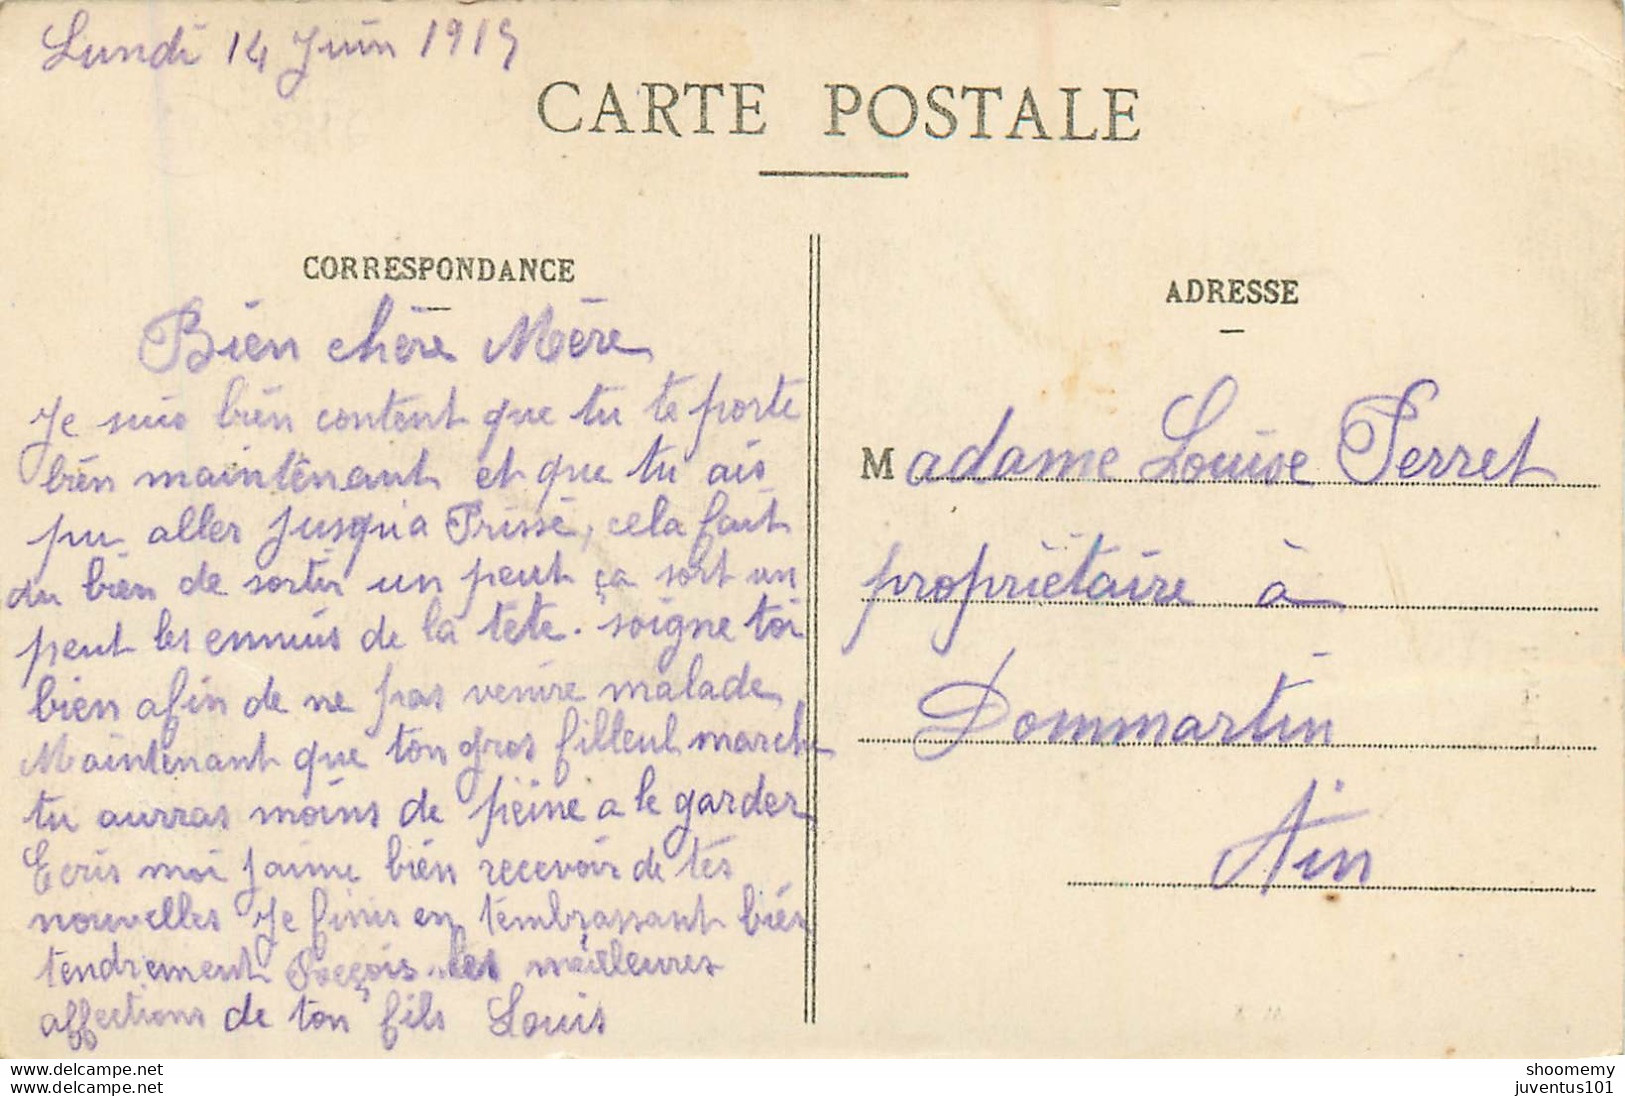 Lundi 14 Juin 1915
CARTE POSTALE
CORRESPONDANCE
Bien chère Mère
Je suis bien content que tu te porte
bien maintenant et que tu ais
pu aller jusqu'a Prissé, cela fait
du bien de sortir un peut ça sort un
peut les ennuis de la tête. soigne toi
bien afin de ne pas venire malade
Maintenant que ton gros filleul marche
tu aurras moins de peine a le garder
Ecris moi j'aime bien recevoir de tes
nouvelles Je finis en t'embrassant bien
tendrement Reçois les meilleures
affections de ton fils Louis
ADRESSE
Madame Louise Perret
propriétaire à
Dommartin
Ain
shoomemy
juventus101
www.delcampe.net
www.delcampe.net